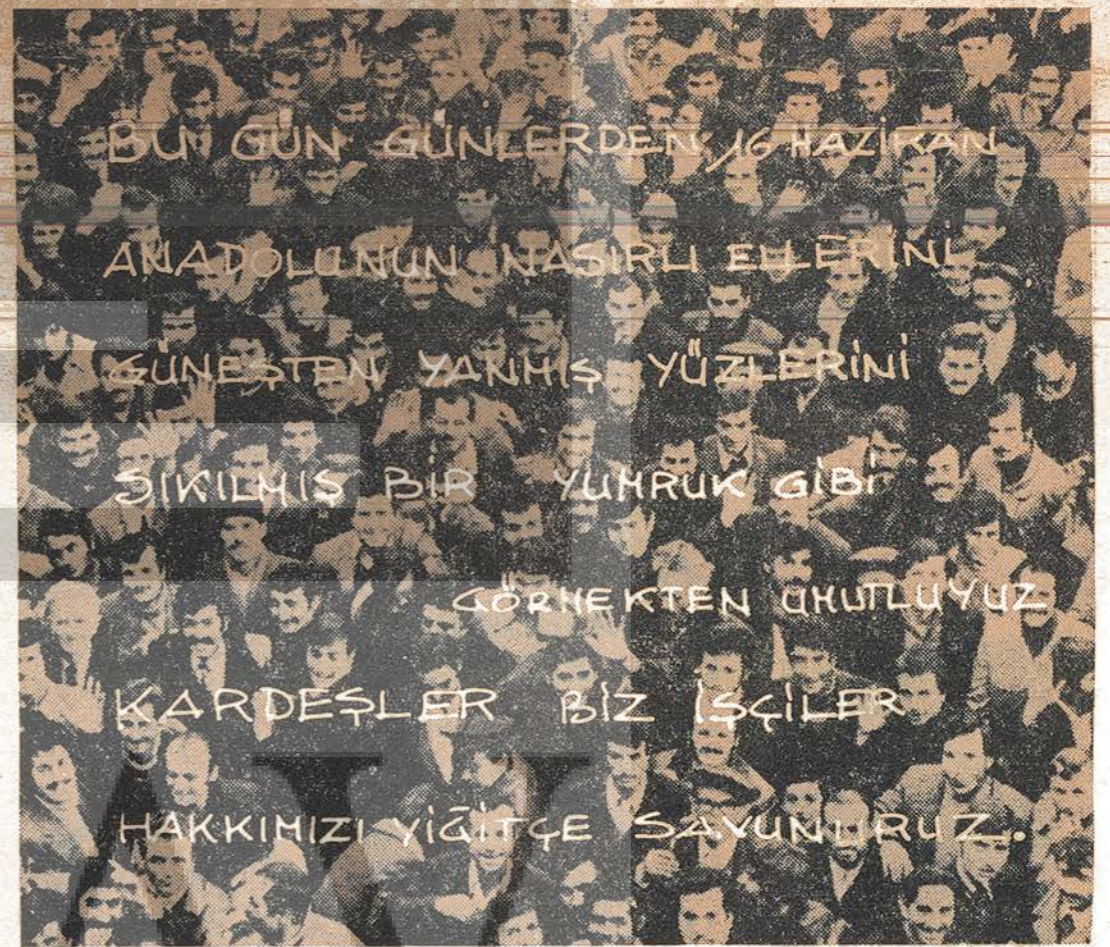 BU GÜN GÜNLERDEN 16 HAZİRAN
ANADOLUNUN NASIRLI ELLERİNİ
GÜNEŞTEN YANMIŞ YÜZLERİNİ
SIKILMIŞ BİR YUMRUK GİBİ
GÖRMEKTEN UMUTLUYUZ
KARDEŞLER BİZ İŞÇİLER
HAKKIMIZI YİĞİTÇE SAVUNURUZ.